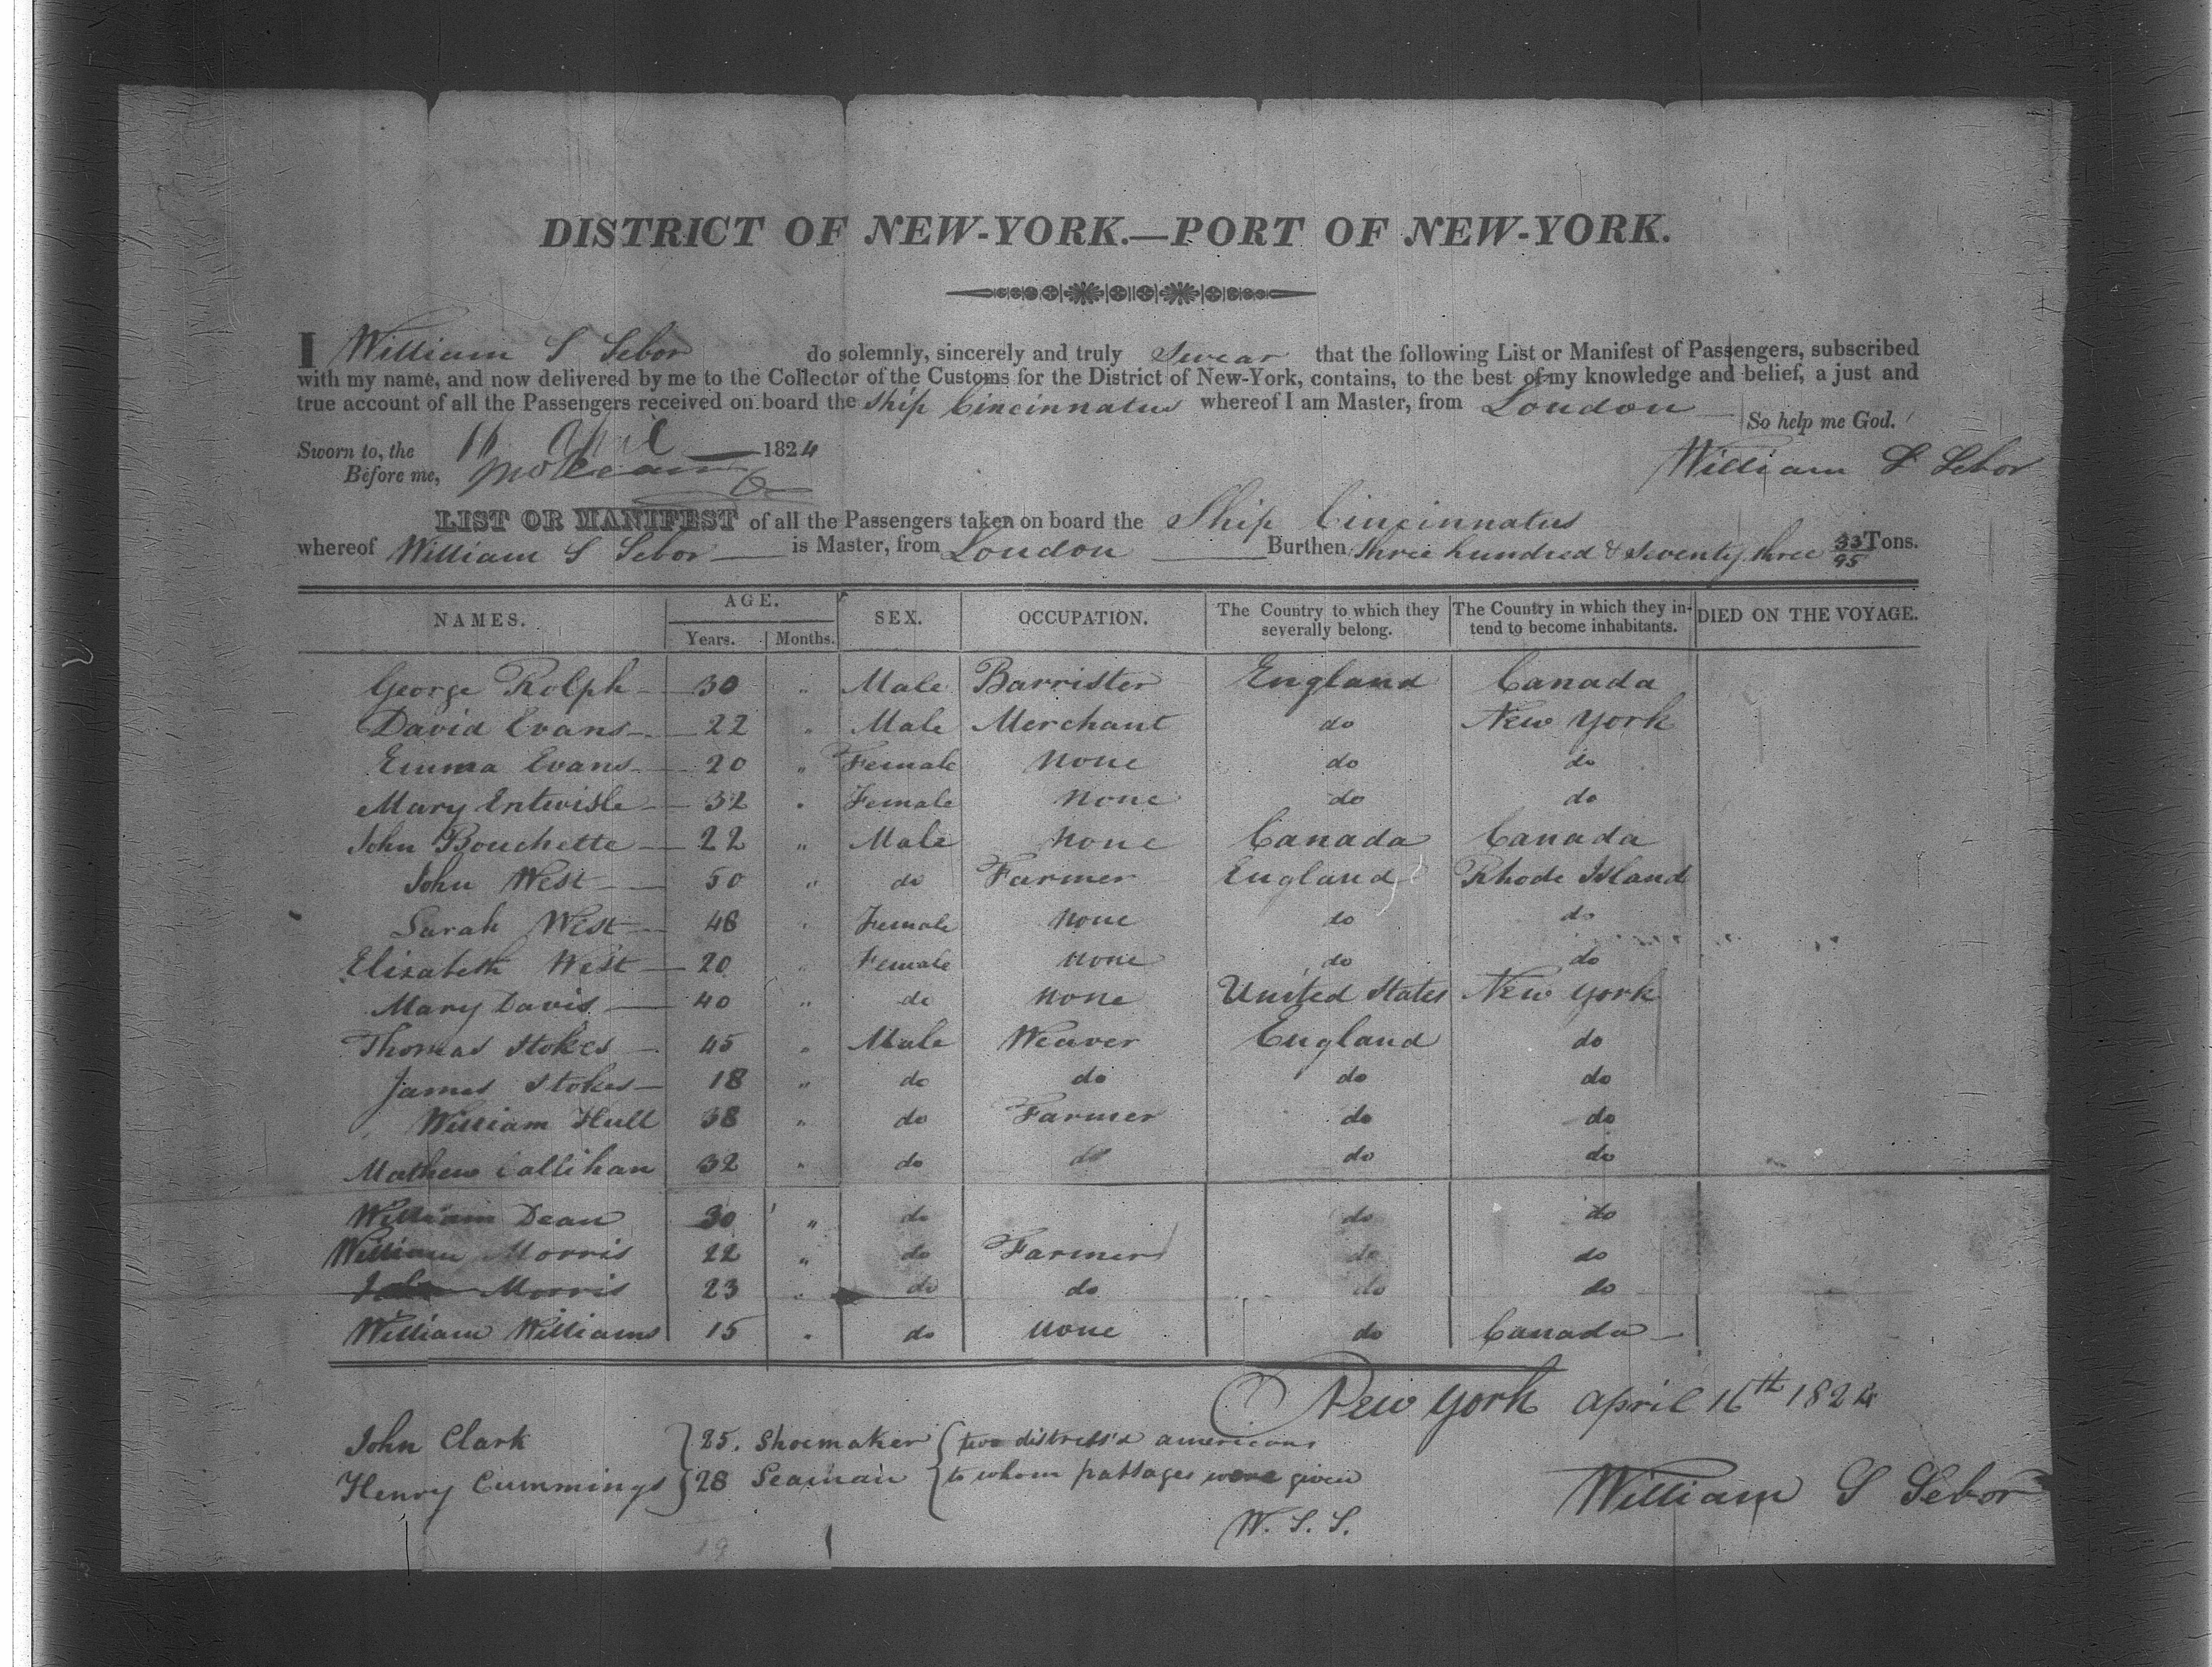 DISTRICT OF NEW-YORK.—PORT OF NEW-YORK.
I William S Sebor do solemnly, sincerely and truly Swear that the following List or Manifest of Passengers, subscribed
with my name, and now delivered by me to the Collector of the Customs for the District of New-York, contains, to the best of my knowledge and belief, a just and
true account of all the Passengers received on board the Ship Cincinnatus whereof I am Master, from London
So help me God.
Sworn to, the 16 April 1824
Before me,
William S Sebor
LIST OR MANIFEST of all the Passengers taken on board the Ship Cincinnatus
whereof William S Sebor is Master, from London Burthen three hundred & seventy three 33/95 Tons.
NAMES. AGE. Years. Months. SEX. OCCUPATION. The Country to which they severally belong. The Country in which they intend to become inhabitants. DIED ON THE VOYAGE.
George Rolph 30 " Male Barrister England Canada
David Evans 22 " Male Merchant do New York
Emma Evans 20 " Female None do do
Mary Entwisle 32 " Female None do do
John Bouchette 22 " Male None Canada Canada
John West 50 " do Farmer England Rhode Island
Sarah West 48 " Female None do do
Elizabeth West 20 " Female None do do
Mary Davis 40 " do None United States New York
Thomas Stokes 45 " Male Weaver England do
James Stokes 18 " do do do do
William Hull 38 " do Farmer do do
Mathew Callihan 32 " do do do do
William Dean 30 " do do do
William Morris 22 " do Farmer do do
Morris 23 " do do do do
William Williams 15 " do None do Canada
New York April 16th 1824
John Clark } 25. Shoemaker { two distress'd americans
Henry Cummings } 28 Seaman { to whom passages were given
W. S. S.
William S Sebor
19